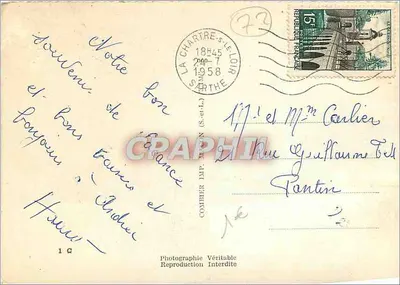 72
LA CHARTRE-s-LE-LOIR
18H45
24-7
1958
SARTHE
15F
Notre bon
souvenir de
et bons baisers et
toujours à
Mr et Mme Carlier
21 Rue Guillaume Tell
Pantin
1€
COMBIER IMP. MACON (S.-et-L.)
CARTOPHILIE
1 C
Photographie Véritable
Reproduction Interdite